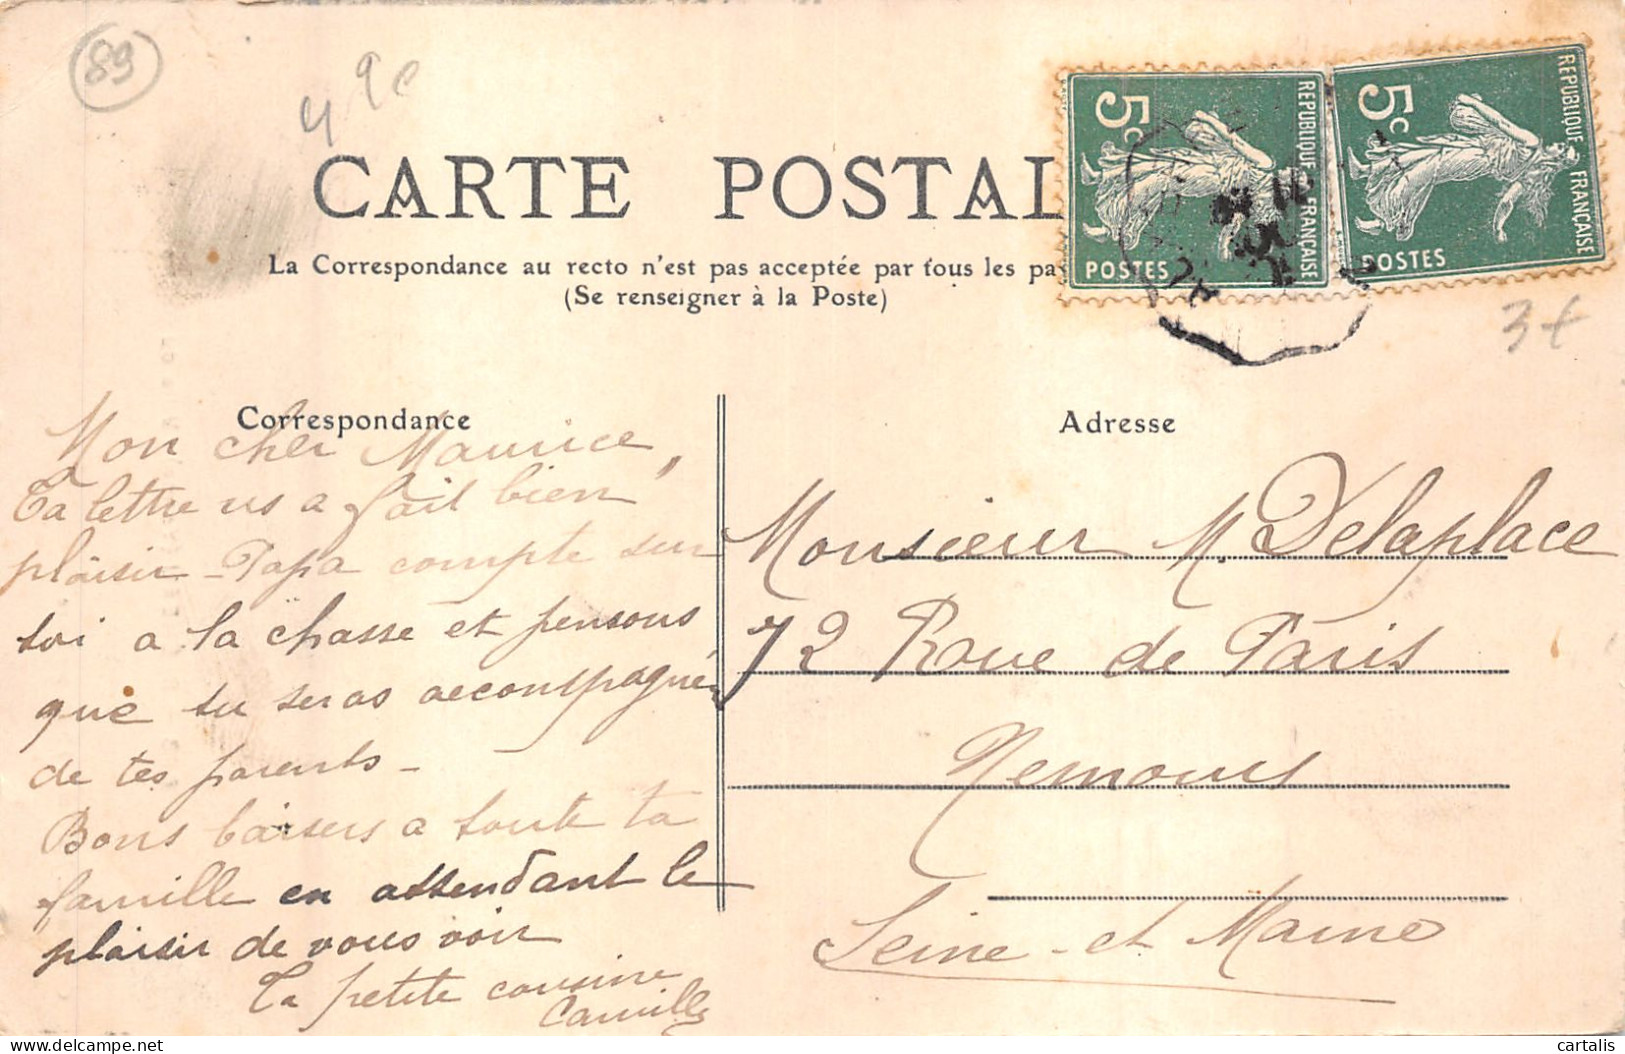 89
49c
CARTE POSTAL
La Correspondance au recto n'est pas acceptée par tous les pa
(Se renseigner à la Poste)
5c
REPUBLIQUE FRANÇAISE
POSTES
5c
REPUBLIQUE FRANÇAISE
POSTES
3€
Correspondance
Mon cher Maurice,
Ta lettre ns a fait bien
plaisir - Papa compte sur
toi a la chasse et pensons
que tu seras accompagné
de tes parents -
Bons baisers a toute ta
famille en attendant le
plaisir de vous voir
Ta petite cousine
Camille
Adresse
Monsieur M. Delaplace
72 Roue de Paris
Nemours
Seine-et Marne
cartalis
delcampe.net